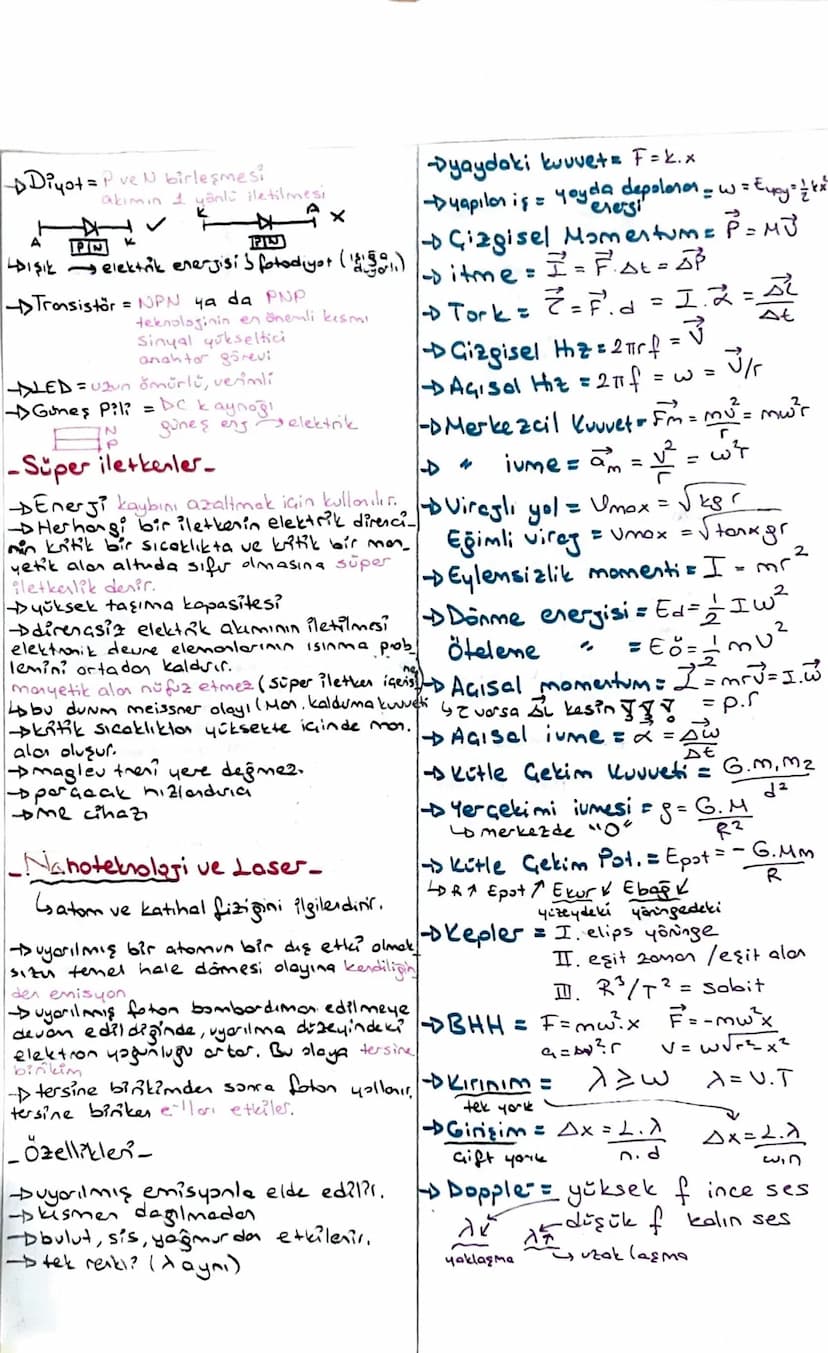 →Diyot = P ve N birleşmesi
akımın 1 yönlü iletilmesi
A P N K ✓
K P N A ✗
↳ışık → elektrik enerjisi ↳ fotodiyot (ışığa duyarlı)
→Transistör = NPN ya da PNP
teknolojinin en önemli kısmı
Sinyal yükseltici
anahtar görevi
→LED = uzun ömürlü, verimli
→Güneş Pili = DC kaynağı
güneş enj → elektrik
N
P
-Süper iletkenler-
→Enerji kaybını azaltmak için kullanılır.
→Herhangi bir iletkenin elektrik direnci-
nin kritik bir sıcaklıkta ve kritik bir man-
yetik alan altında sıfır olmasına süper
iletkenlik denir.
→yüksek taşıma kapasitesi
→dirençsiz elektrik akımının iletilmesi
elektronik devre elemanlarının ısınma prob
lemini ortadan kaldırır.
manyetik alan nüfuz etmez (süper iletken içerisine)
↳bu durum meissner olayı (Man. kaldırma kuvveti
→kritik sıcaklıktan yüksekte içinde man.
alan oluşur.
→maglev treni yere değmez.
→parçacık hızlandırıcı
→MR cihazı
-Nanoteknoloji ve Laser-
↳atom ve katıhal fiziğini ilgilendirir.
→uyarılmış bir atomun bir dış etki olmak
sızın temel hale dönmesi olayına kendiliğin
den emisyon
→uyarılmış foton bombardıman edilmeye
devam edildiğinde, uyarılma düzeyindeki
elektron yoğunluğu artar. Bu olaya tersine
birikim
→tersine birikimden sonra foton yollanır,
tersine biriken e⁻ları etkiler.
-Özellikleri-
→uyarılmış emisyonla elde edilir.
→kısmen dağılmadan
→bulut, sis, yağmurdan etkilenir.
→tek renkli (λ aynı)
→yaydaki kuvvet = F = k.x
→yapılan iş = yayda depolanan enerji = W = Eyay = ½ kx²
→Çizgisel Momentum = P⃗ = MV⃗
→itme = I⃗ = F⃗.Δt = ΔP⃗
→Tork = τ⃗ = F⃗.d = I.α⃗ = ΔL⃗/Δt
→Çizgisel Hız = 2πrf = V⃗
→Açısal Hız = 2πf = ω = V⃗/r
→Merkezcil Kuvvet = F⃗m = mv²/r = mω²r
→ " ivme = a⃗m = v²/r = ω²r
→Virajlı yol = Vmax = √kgr
Eğimli viraj = Vmax = √tanαgr
→Eylemsizlik momenti = I = mr²
→Dönme enerjisi = Ed = ½ Iω²
Öteleme " = Eö = ½ mV²
→Açısal momentum = L⃗ = mrV⃗ = I.ω⃗
↳ τ varsa ΔL kesin = p.r
→Açısal ivme = α = Δω⃗/Δt
→Kütle Çekim Kuvveti = G.m₁m₂/d²
→Yerçekimi ivmesi = g = G.M/R²
↳ merkezde "0"
→Kütle Çekim Pot. = Epot = - G.Mm/R
↳R↑ Epot↑ Ekur↙ Ebağ↙
yüzeydeki yörüngedeki
→Kepler = I. elips yörünge
II. eşit zaman / eşit alan
III. R³/T² = sabit
→BHH = F = mω².x F⃗ = -mω²x⃗
a = ω².r V = ω√r²-x²
→Kırınım = λ ≥ w λ = V.T
tek yarık
→Girişim = Δx = L.λ/n.d Δx = L.λ/w.n
çift yarık
→Doppler = yüksek f ince ses
λ↙ λ↗ düşük f kalın ses
yaklaşma ↳ uzaklaşma